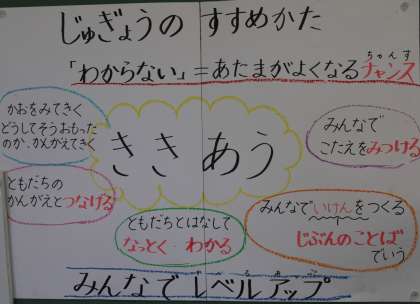 じゅぎょうの すすめかた
「わからない」=あたまがよくなるチャンス
ちゃんす
かおをみてきく
どうしてそうおもった
のか、かんがえてきく
ききあう
みんなで
こたえをみつける
ともだちの
かんがえとつなげる
ともだちとはなして
なっとく わかる
みんなでいけんをつくる
じぶんのことば
でいう
みんなでレベルアップ